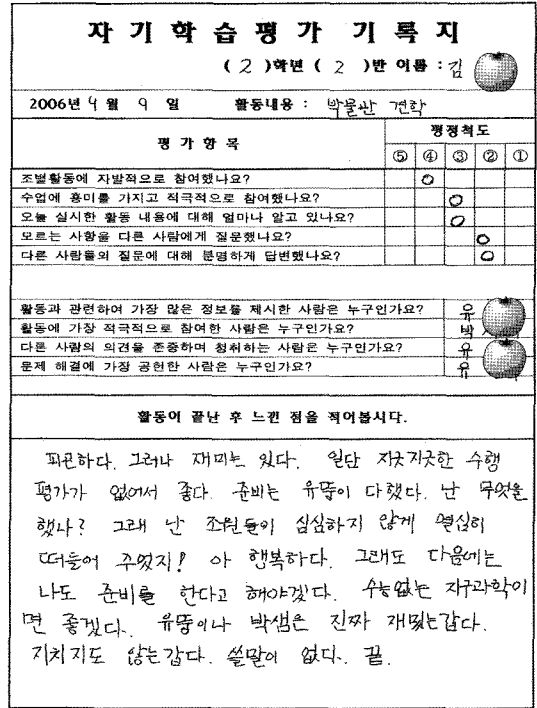 자 기 학 습 평 가 기 록 지
( 2 )학년 ( 2 )반 이름 : 김
2006년 4 월 9 일 활동내용 : 박물관 견학
평 가 항 목 평정척도
⑤ ④ ③ ② ①
조별활동에 자발적으로 참여했나요? O
수업에 흥미를 가지고 적극적으로 참여했나요? O
오늘 실시한 활동 내용에 대해 얼마나 알고 있나요? O
모르는 사항을 다른 사람에게 질문했나요? O
다른 사람들의 질문에 대해 분명하게 답변했나요? O
활동과 관련하여 가장 많은 정보를 제시한 사람은 누구인가요? 유
활동에 가장 적극적으로 참여한 사람은 누구인가요? 박
다른 사람의 의견을 존중하며 청취하는 사람은 누구인가요? 유
문제 해결에 가장 공헌한 사람은 누구인가요? 유
활동이 끝난 후 느낀 점을 적어봅시다.
피곤하다. 그러나 재미는 있다. 일단 지긋지긋한 수행
평가가 없어서 좋다. 준비는 유뚱이 다했다. 난 무엇을
했나? 그래 난 조원들이 심심하지 않게 열심히
떠들어 주었지! 아 행복하다. 그래도 다음에는
나도 준비를 한다고 해야겠다. 수능없는 지구과학이
면 좋겠다. 유뚱이나 박샘은 진짜 재밌는갑다.
지치지도 않는갑다. 쓸말이 없다. 끝.